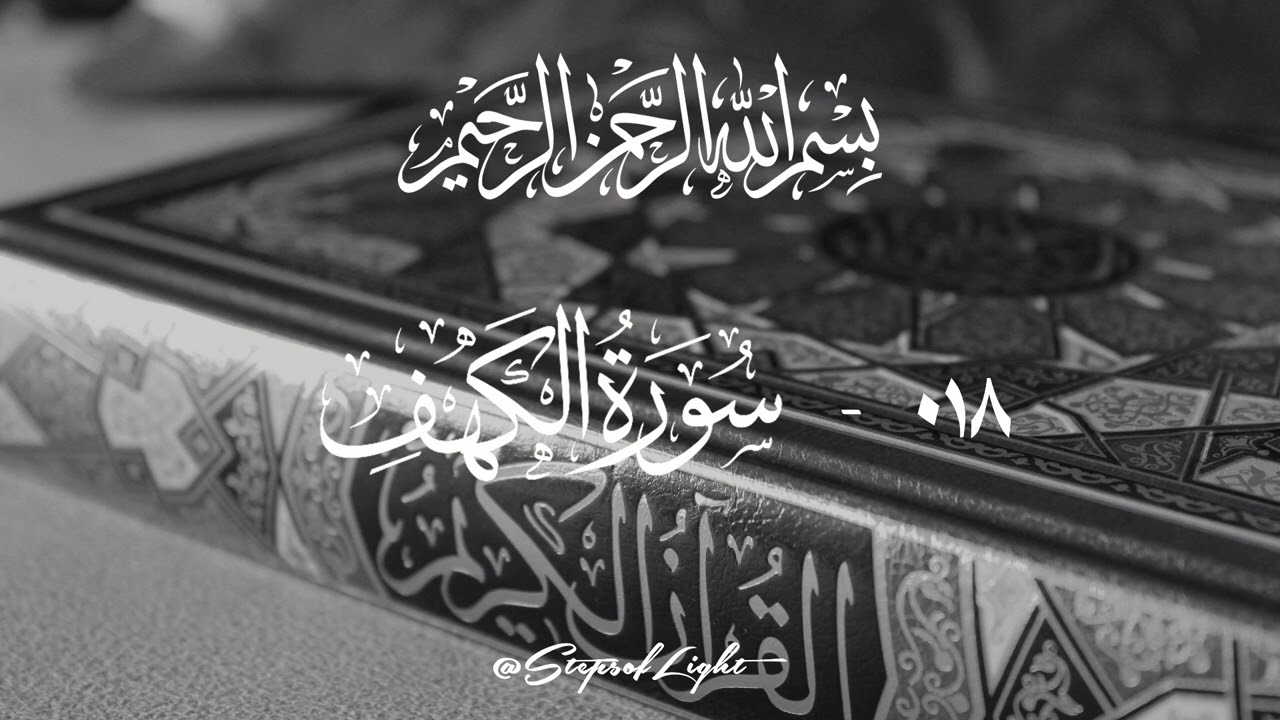 بِسْمِ اللهِ الرَّحْمٰنِ الرَّحِيْمِ
٠١٨ - سُوْرَةُ الْكَهْفِ
القُرآنُ الكَرِيمُ
@StepsofLight